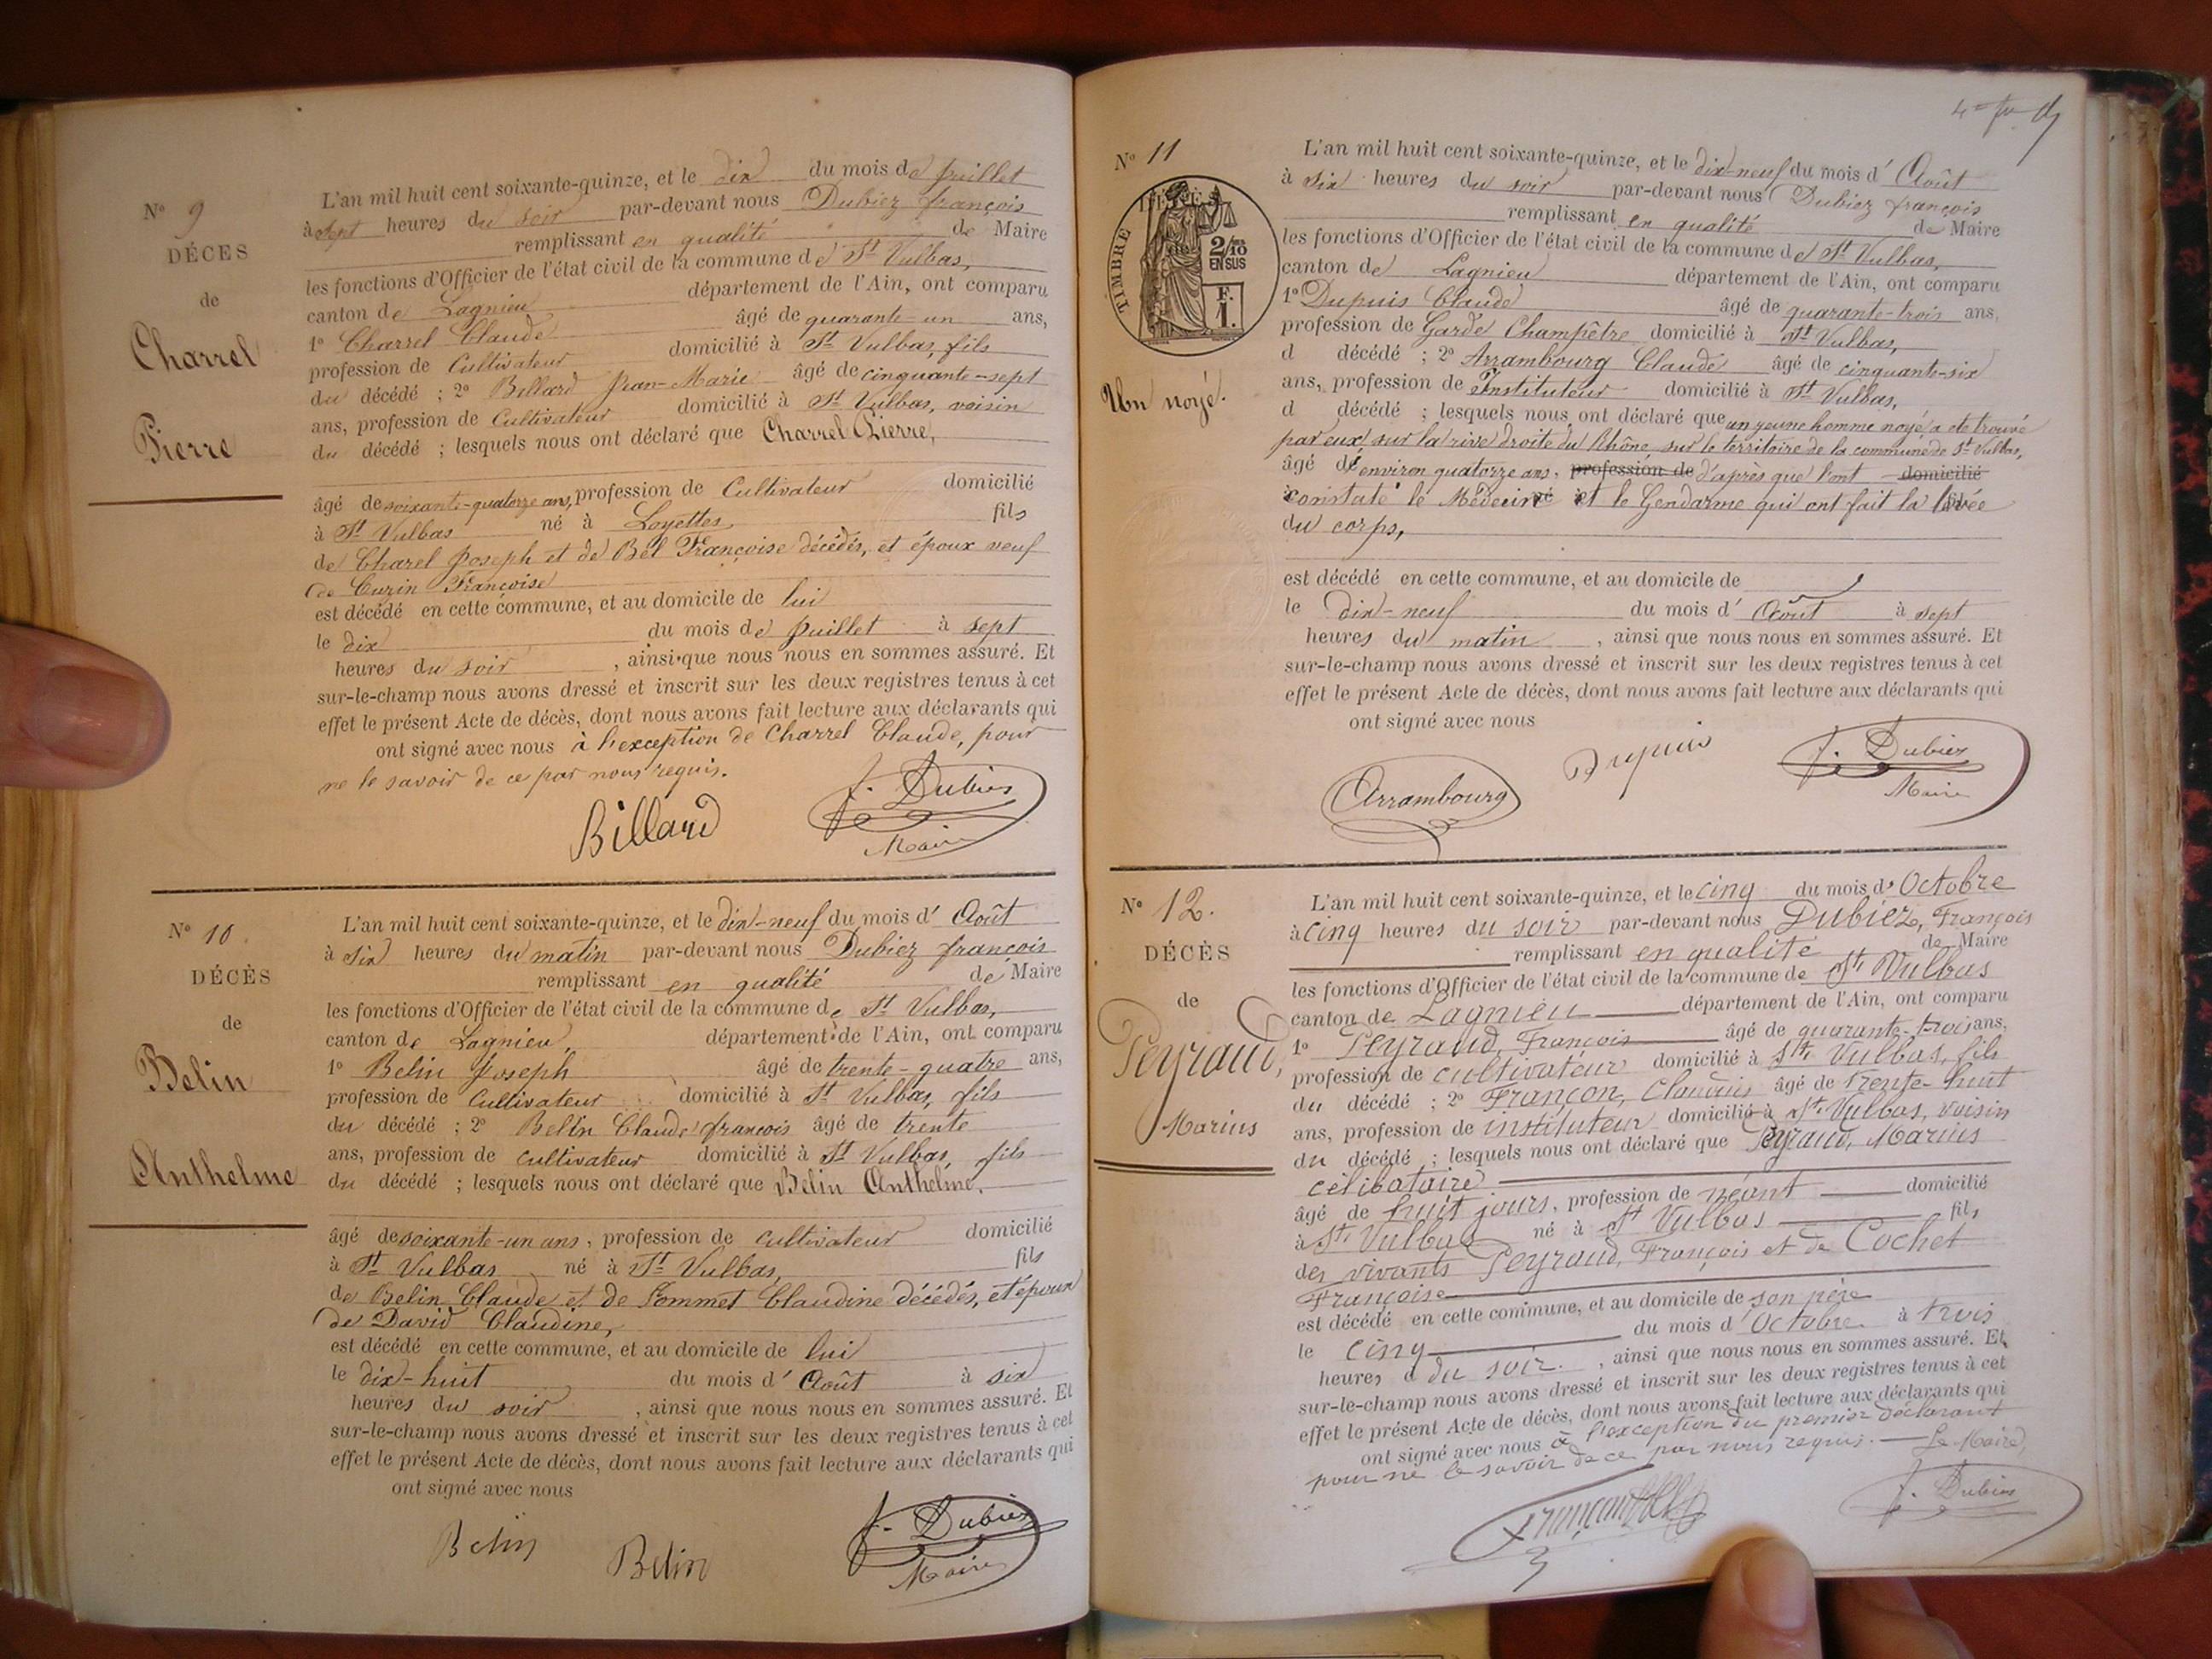 N° 9
DÉCES
de
Charrel
Pierre
L'an mil huit cent soixante-quinze, et le dix du mois de Juillet
à sept heures du soir par-devant nous Dubiez françois
remplissant en qualité de Maire
les fonctions d'Officier de l'état civil de la commune de St Vulbas,
canton de Lagnieu département de l'Ain, ont comparu
1° Charrel Claude âgé de quarante-un ans,
profession de Cultivateur domicilié à St Vulbas, fils
du décédé ; 2° Billard Jean-Marie âgé de cinquante-sept
ans, profession de Cultivateur domicilié à St Vulbas, voisin
du décédé ; lesquels nous ont déclaré que Charrel Pierre,
âgé de soixante-quatorze ans, profession de Cultivateur domicilié
à St Vulbas né à Loyettes fils
de Charel Joseph et de Bel Françoise décédés, et époux veuf
de Curin Françoise
est décédé en cette commune, et au domicile de lui
le dix du mois de Juillet à sept
heures du soir, ainsi que nous nous en sommes assuré. Et
sur-le-champ nous avons dressé et inscrit sur les deux registres tenus à cet
effet le présent Acte de décès, dont nous avons fait lecture aux déclarants qui
ont signé avec nous à l'exception de Charrel Claude, pour
ne le savoir de ce par nous requis.
Billard
f. Dubiez
Maire
N° 10.
DÉCÈS
de
Belin
Anthelme
L'an mil huit cent soixante-quinze, et le dix-neuf du mois d' Août
à six heures du matin par-devant nous Dubiez françois
remplissant en qualité de Maire
les fonctions d'Officier de l'état civil de la commune de St Vulbas,
canton de Lagnieu, département de l'Ain, ont comparu
1° Belin Joseph âgé de trente-quatre ans,
profession de Cultivateur domicilié à St Vulbas, fils
du décédé ; 2° Belin Claude françois âgé de trente
ans, profession de cultivateur domicilié à St Vulbas, fils
du décédé ; lesquels nous ont déclaré que Belin Anthelme,
âgé de soixante-un ans, profession de cultivateur domicilié
à St Vulbas né à St Vulbas, fils
de Belin Claude et de Pommet Claudine décédés, et époux
de David Claudine,
est décédé en cette commune, et au domicile de lui
le dix-huit du mois d' Août à six
heures du soir, ainsi que nous nous en sommes assuré. Et
sur-le-champ nous avons dressé et inscrit sur les deux registres tenus à cet
effet le présent Acte de décès, dont nous avons fait lecture aux déclarants qui
ont signé avec nous
Belin
Belin
f. Dubiez
Maire
N° 11
TIMBRE
2/10
EN SUS
F.
1.
Un noyé.
L'an mil huit cent soixante-quinze, et le dix-neuf du mois d' Août
à six heures du soir par-devant nous Dubiez françois
remplissant en qualité de Maire
les fonctions d'Officier de l'état civil de la commune de St Vulbas,
canton de Lagnieu département de l'Ain, ont comparu
1° Dupuis Claude âgé de quarante-trois ans,
profession de Garde Champêtre domicilié à St Vulbas,
d décédé ; 2° Arrambourg Claude âgé de cinquante-six
ans, profession de Instituteur domicilié à St Vulbas,
d décédé ; lesquels nous ont déclaré que un jeune homme noyé a été trouvé
par eux sur la rive droite du Rhône sur le territoire de la commune de St Vulbas,
âgé d'environ quatorze ans, profession de d'après que l'ont domicilié
constaté le Médecin et le Gendarme qui ont fait la levée
du corps,
est décédé en cette commune, et au domicile de
le dix-neuf du mois d' Août à sept
heures du matin, ainsi que nous nous en sommes assuré. Et
sur-le-champ nous avons dressé et inscrit sur les deux registres tenus à cet
effet le présent Acte de décès, dont nous avons fait lecture aux déclarants qui
ont signé avec nous
Arrambourg
Dupuis
f. Dubiez
Maire
N° 12.
DÉCÈS
de
Peyraud,
Marius
L'an mil huit cent soixante-quinze, et le cinq du mois d' Octobre
à cinq heures du soir par-devant nous Dubiez, François
remplissant en qualité de Maire
les fonctions d'Officier de l'état civil de la commune de St. Vulbas
canton de Lagnieu département de l'Ain, ont comparu
1° Peyraud, François âgé de quarante-trois ans,
profession de cultivateur domicilié à St. Vulbas, fils
du décédé ; 2° Françon, Claudius âgé de trente-huit
ans, profession de instituteur domicilié à St. Vulbas, voisin
du décédé ; lesquels nous ont déclaré que Peyraud, Marius
célibataire
âgé de huit jours, profession de néant domicilié
à St. Vulbas né à St Vulbas fils
des vivants Peyraud, François et de Cochet
Françoise
est décédé en cette commune, et au domicile de son père
le cinq du mois d' Octobre à trois
heures du soir., ainsi que nous nous en sommes assuré. Et
sur-le-champ nous avons dressé et inscrit sur les deux registres tenus à cet
effet le présent Acte de décès, dont nous avons fait lecture aux déclarants qui
ont signé avec nous à l'exception du premier déclarant
pour ne le savoir de ce par nous requis. Le Maire,
f. Dubiez